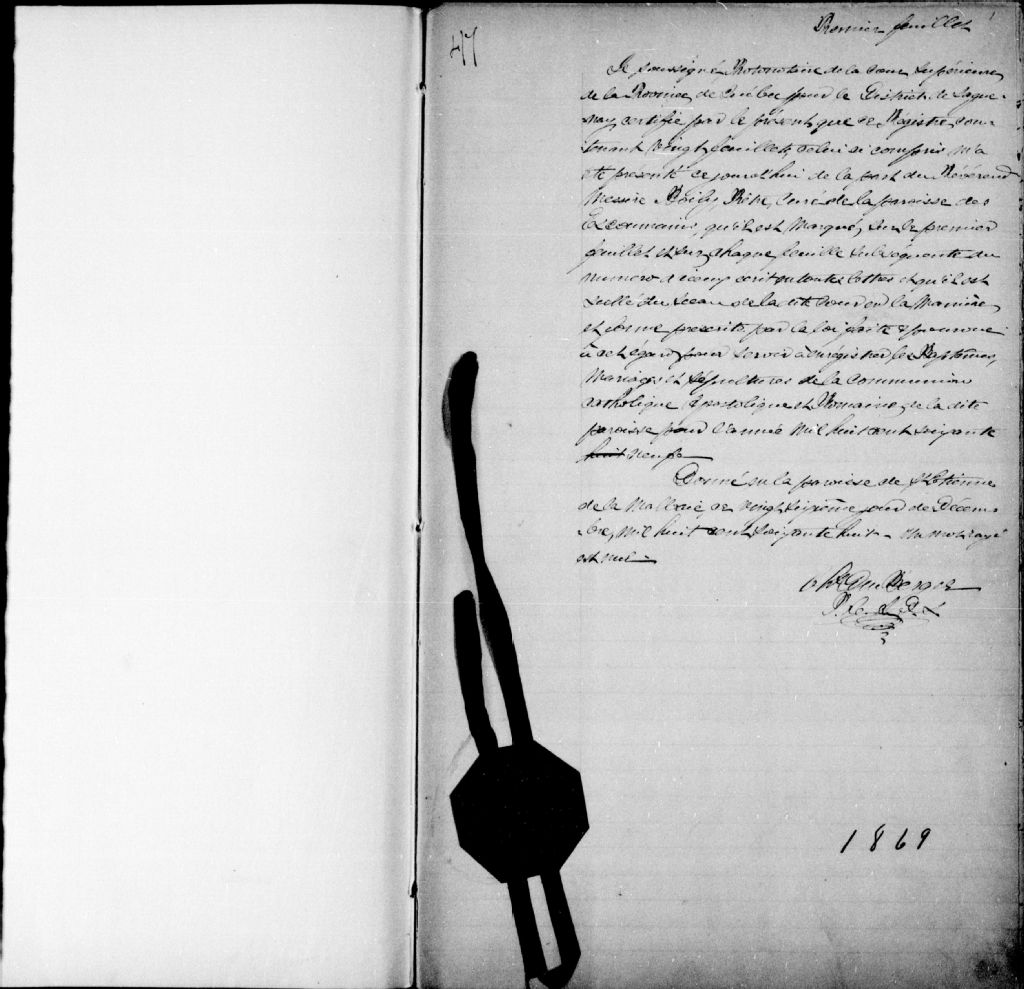 Premier feuillet
1
47
Je soussigné Protonotaire de la Cour Supérieure
de la Province de Québec pour le District de Sague-
nay certifie par le présent que ce Régistre, con-
tenant Vingt feuillets, celui ci compris m'a
été présenté ce jourd'hui de la part du Révérend
Messire Boily, Prêtre, curé de la paroisse des
Escoumains, qu'il est Marqué, sur le premier
feuillet et sur chaque feuille subséquente du
numero d'iceux écrit en toutes lettres et qu'il est
scellé du sceau de la dite Cour en la Manière
et forme prescrite par la loi faite & pourvue
à cet égard, pour servir à enrégistrer les Baptêmes,
Mariages et Sépultures de la Communion
catholique Apostolique et Romaine, de la dite
paroisse pour l'année Mil huit cent soixante
huit neuf.
Donné en la paroisse de St Etienne
de la Malbaie, ce vingt sixième jour de Décem-
bre, Mil huit cent soixante huit - Un mot rayé
est nul -
Chs Du Berger
P. C. S. D. S.
1869